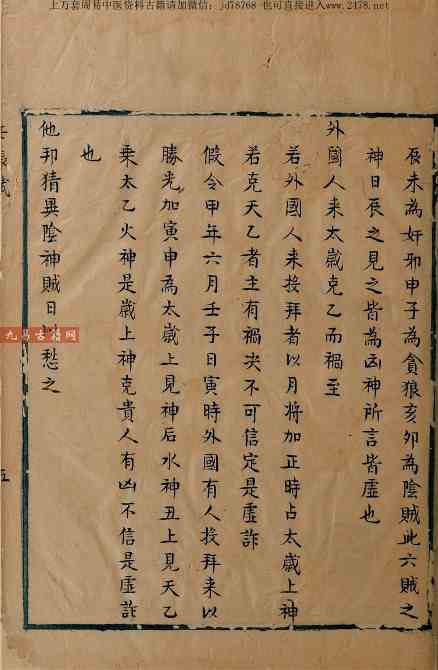 上万套周易中医资料古籍请加微信：jd78768 也可直接进入www.2478.net
辰未為奸邪申子為貪狼亥卯為陰賊此六賊之
神日辰之見之皆為凶神所言皆虛也
外國人來太歲克乙而禍至
若外國人來投拜者以月將加正時占太歲上神
若克天乙者主有禍灾不可信定是虛詐
假令甲年六月壬子日寅時外國有人投拜來以
勝光加寅申為太歲上見神后水神丑上見天乙
乗太乙火神是歲上神克貴人有凶不信是虛詐
也
他邦猜異陰神賊日以愁之
九易古籍网
五